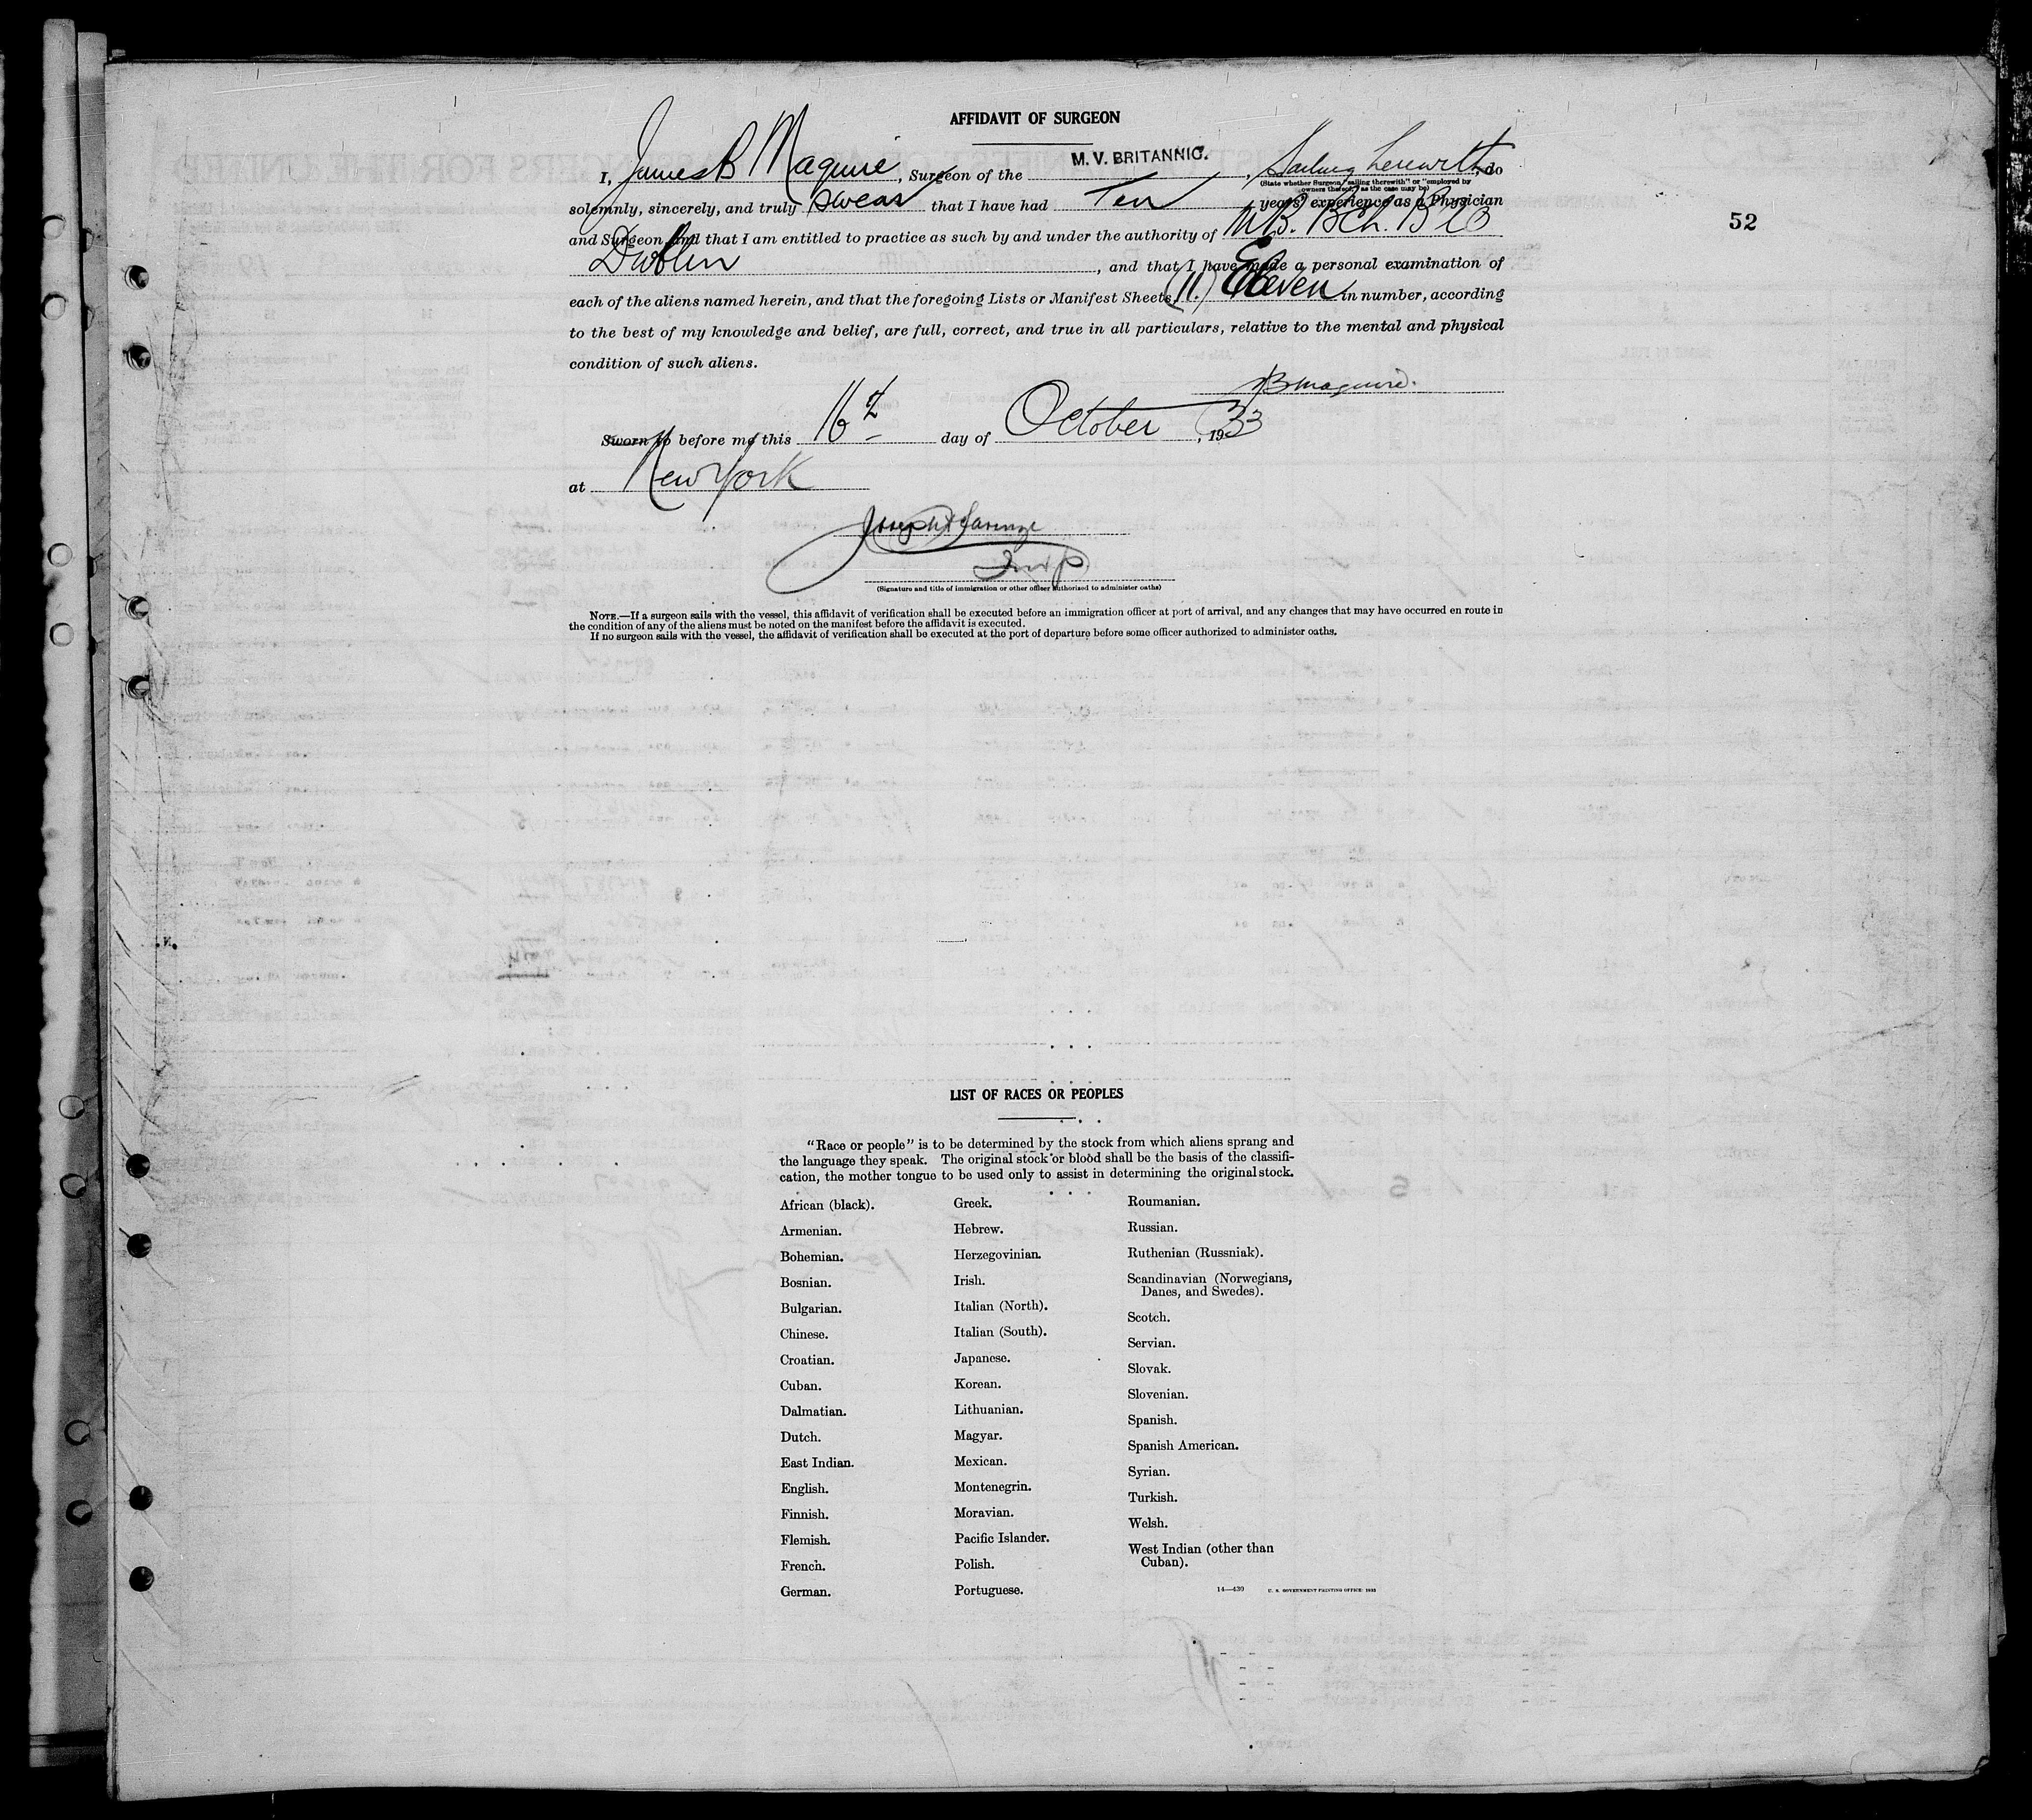 AFFIDAVIT OF SURGEON
I, James B Maguire, Surgeon of the M. V. BRITANNIC., Sailing herewith, do
(State whether Surgeon "sailing therewith" or "employed by
owners thereof," as the case may be)
solemnly, sincerely, and truly swear that I have had Ten years' experience as a Physician
and Surgeon and that I am entitled to practice as such by and under the authority of M.B. BCh.
Dublin, and that I have made a personal examination of
each of the aliens named herein, and that the foregoing Lists or Manifest Sheets, (11.) Eleven in number, according
to the best of my knowledge and belief, are full, correct, and true in all particulars, relative to the mental and physical
condition of such aliens.
JB Maguire.
Sworn to before me this 16th day of October, 1933
at New York
Joseph
Insp
(Signature and title of immigration or other officer authorized to administer oaths)
52
NOTE.—If a surgeon sails with the vessel, this affidavit of verification shall be executed before an immigration officer at port of arrival, and any changes that may have occurred en route in
the condition of any of the aliens must be noted on the manifest before the affidavit is executed.
If no surgeon sails with the vessel, the affidavit of verification shall be executed at the port of departure before some officer authorized to administer oaths.
LIST OF RACES OR PEOPLES
"Race or people" is to be determined by the stock from which aliens sprang and
the language they speak. The original stock or blood shall be the basis of the classifi-
cation, the mother tongue to be used only to assist in determining the original stock.
African (black).
Armenian.
Bohemian.
Bosnian.
Bulgarian.
Chinese.
Croatian.
Cuban.
Dalmatian.
Dutch.
East Indian.
English.
Finnish.
Flemish.
French.
German.
Greek.
Hebrew.
Herzegovinian.
Irish.
Italian (North).
Italian (South).
Japanese.
Korean.
Lithuanian.
Magyar.
Mexican.
Montenegrin.
Moravian.
Pacific Islander.
Polish.
Portuguese.
Roumanian.
Russian.
Ruthenian (Russniak).
Scandinavian (Norwegians,
Danes, and Swedes).
Scotch.
Servian.
Slovak.
Slovenian.
Spanish.
Spanish American.
Syrian.
Turkish.
Welsh.
West Indian (other than
Cuban).
14—430 U. S. GOVERNMENT PRINTING OFFICE: 1932